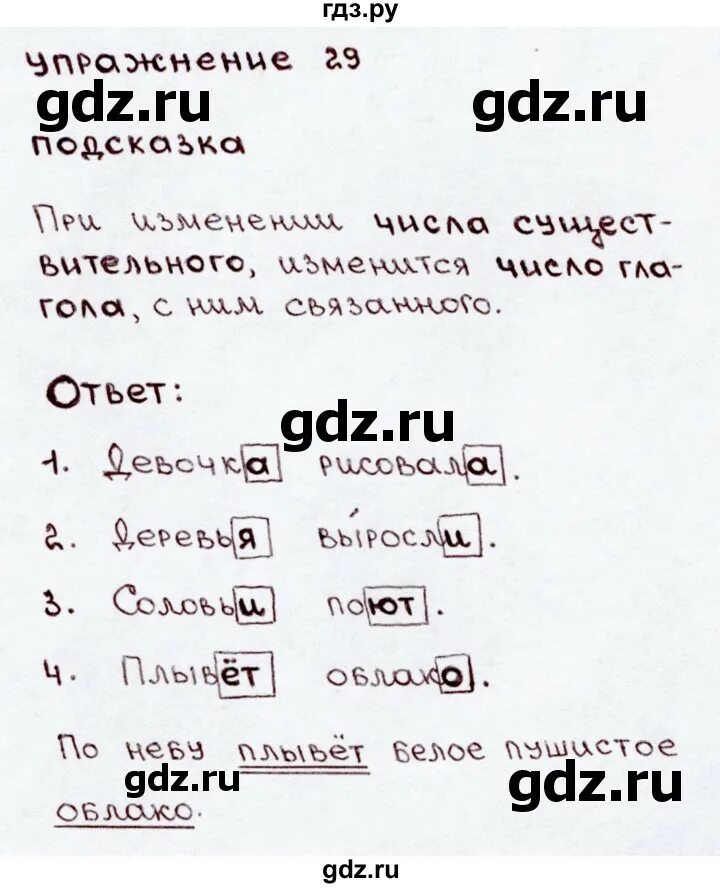 гдз.ру
упражнение 29
gdz.ru gdz.ru
подсказка
При изменении числа сущест-
вительного, изменится число гла-
гола, с ним связанного.
Ответ:
gdz.ru
1. Девочка рисовала.
2. Деревья выросли.
3. Соловьи поют.
4. Плывёт облако.
По небу плывёт белое пушистое
gdz.ru gdz.ru
облако.
gdz.ru